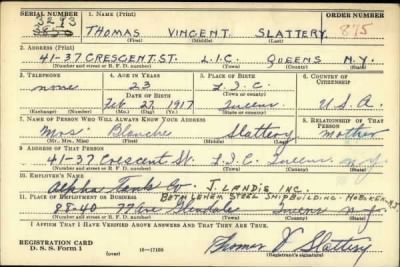 SERIAL NUMBER 1. NAME (Print) ORDER NUMBER
3293
3856 THOMAS VINCENT SLATTERY. 875
(First) (Middle) (Last)
2. ADDRESS (Print)
41-37 CRESCENT ST. L.I.C. QUEENS N.Y.
(Number and street or R. F. D. number) (Town) (County) (State)
3. TELEPHONE 4. AGE IN YEARS 5. PLACE OF BIRTH 6. COUNTRY OF CITIZENSHIP
none 23 L.I.C.
DATE OF BIRTH (Town or county)
Feb 27, 1917 Queens U.S.A.
(Exchange) (Number) (Mo.) (Day) (Yr.) (State or country)
7. NAME OF PERSON WHO WILL ALWAYS KNOW YOUR ADDRESS 8. RELATIONSHIP OF THAT PERSON
Mrs. Blanche Slattery Mother
(Mr., Mrs., Miss) (First) (Middle) (Last)
9. ADDRESS OF THAT PERSON
41-37 Crescent St. L.I.C. Queens N.Y.
(Number and street or R. F. D. number) (Town) (County) (State)
10. EMPLOYER'S NAME
Alpha Tank Co J. LANDIS INC.
11. PLACE OF EMPLOYMENT OR BUSINESS BETHLEHEM STEEL SHIPBUILDING-HOBOKEN NJ
88-40 77 Ave Glendale Queens N.Y.
(Number and street or R. F. D. number) (Town) (County) (State)
I AFFIRM THAT I HAVE VERIFIED ABOVE ANSWERS AND THAT THEY ARE TRUE.
REGISTRATION CARD
D. S. S. Form 1 (over) 16—17105 Thomas V Slattery
(Registrant's signature)